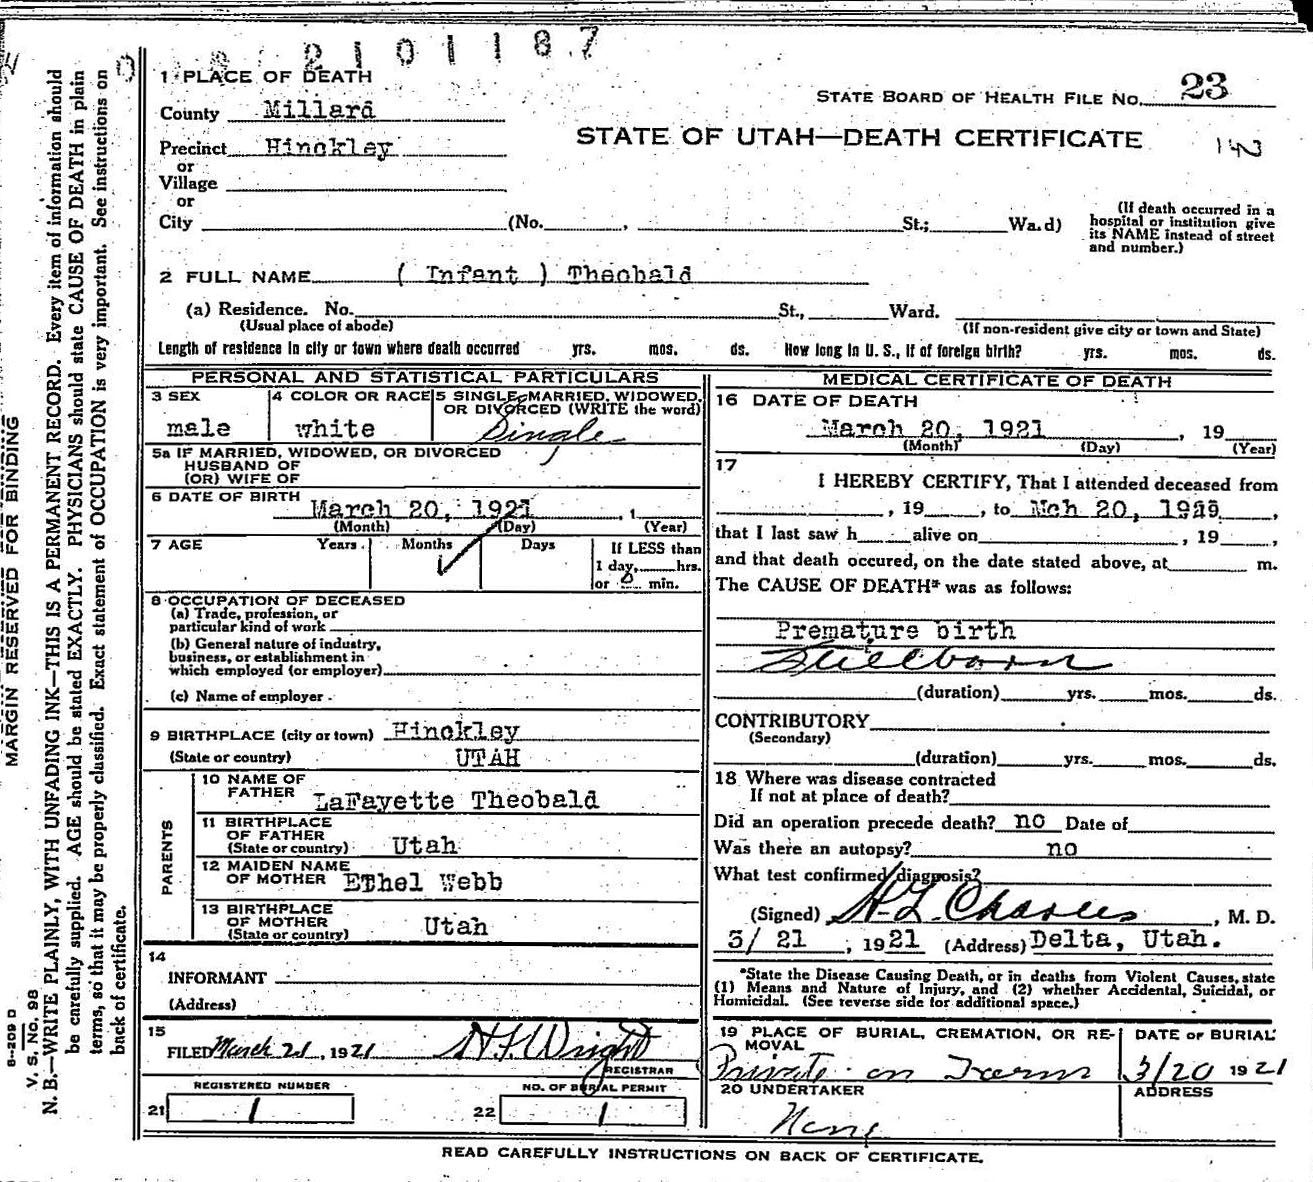 2101187
1 PLACE OF DEATH
STATE BOARD OF HEALTH FILE NO. 23
County Millard
STATE OF UTAH—DEATH CERTIFICATE
Precinct Hinckley
or
Village
or
City (No. , St.; Ward)
(If death occurred in a
hospital or institution give
its NAME instead of street
and number.)
2 FULL NAME ( Infant ) Theobald
(a) Residence. No. St., Ward.
(Usual place of abode) (If non-resident give city or town and State)
Length of residence in city or town where death occurred yrs. mos. ds. How long in U. S., if of foreign birth? yrs. mos. ds.
PERSONAL AND STATISTICAL PARTICULARS
3 SEX 4 COLOR OR RACE 5 SINGLE, MARRIED, WIDOWED,
OR DIVORCED (WRITE the word)
male white Single
5a IF MARRIED, WIDOWED, OR DIVORCED
HUSBAND OF
(OR) WIFE OF
6 DATE OF BIRTH
March 20, 1921 , 1
(Month) (Day) (Year)
7 AGE Years Months Days If LESS than
1 day, hrs.
or 0 min.
8 OCCUPATION OF DECEASED
(a) Trade, profession, or
particular kind of work
(b) General nature of industry,
business, or establishment in
which employed (or employer)
(c) Name of employer
9 BIRTHPLACE (city or town) Hinckley
(State or country) UTAH
PARENTS
10 NAME OF
FATHER LaFayette Theobald
11 BIRTHPLACE
OF FATHER
(State or country) Utah
12 MAIDEN NAME
OF MOTHER EThel Webb
13 BIRTHPLACE
OF MOTHER
(State or country) Utah
14
INFORMANT
(Address)
15
FILED March 21, 1921 H.F. Wright
REGISTRAR
REGISTERED NUMBER NO. OF BURIAL PERMIT
21 1 22 1
MEDICAL CERTIFICATE OF DEATH
16 DATE OF DEATH
March 20, 1921 , 19
(Month) (Day) (Year)
17
I HEREBY CERTIFY, That I attended deceased from
, 19 , to Mch 20, 19 ,
that I last saw h alive on , 19 ,
and that death occured, on the date stated above, at m.
The CAUSE OF DEATH* was as follows:
Premature birth
Stillborn
(duration) yrs. mos. ds.
CONTRIBUTORY
(Secondary)
(duration) yrs. mos. ds.
18 Where was disease contracted
If not at place of death?
Did an operation precede death? no Date of
Was there an autopsy? no
What test confirmed diagnosis?
(Signed) H. L. Charles , M. D.
3/ 21 , 1921 (Address) Delta, Utah.
*State the Disease Causing Death, or in deaths from Violent Causes, state
(1) Means and Nature of Injury, and (2) whether Accidental, Suicidal, or
Homicidal. (See reverse side for additional space.)
19 PLACE OF BURIAL, CREMATION, OR RE-
MOVAL
DATE OF BURIAL
Private on Farm 3/20 1921
20 UNDERTAKER ADDRESS
None
READ CAREFULLY INSTRUCTIONS ON BACK OF CERTIFICATE.
MARGIN RESERVED FOR BINDING
S-209 D
V. S. No. 98
N. B.—WRITE PLAINLY, WITH UNFADING INK—THIS IS A PERMANENT RECORD. Every item of information should
be carefully supplied. AGE should be stated EXACTLY. PHYSICIANS should state CAUSE OF DEATH in plain
terms, so that it may be properly classified. Exact statement of OCCUPATION is very important. See instructions on
back of certificate.